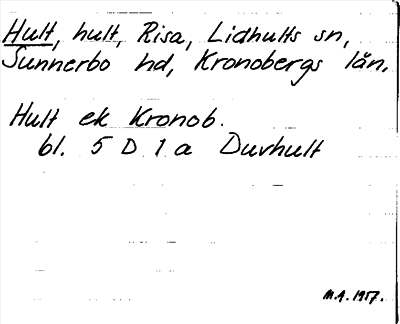 Hult, hult, Risa, Lidhults sn,
Sunnerbo hd, Kronobergs län.
Hult ek Kronob.
bl. 5 D 1 a Duvhult
M.A. 1957.